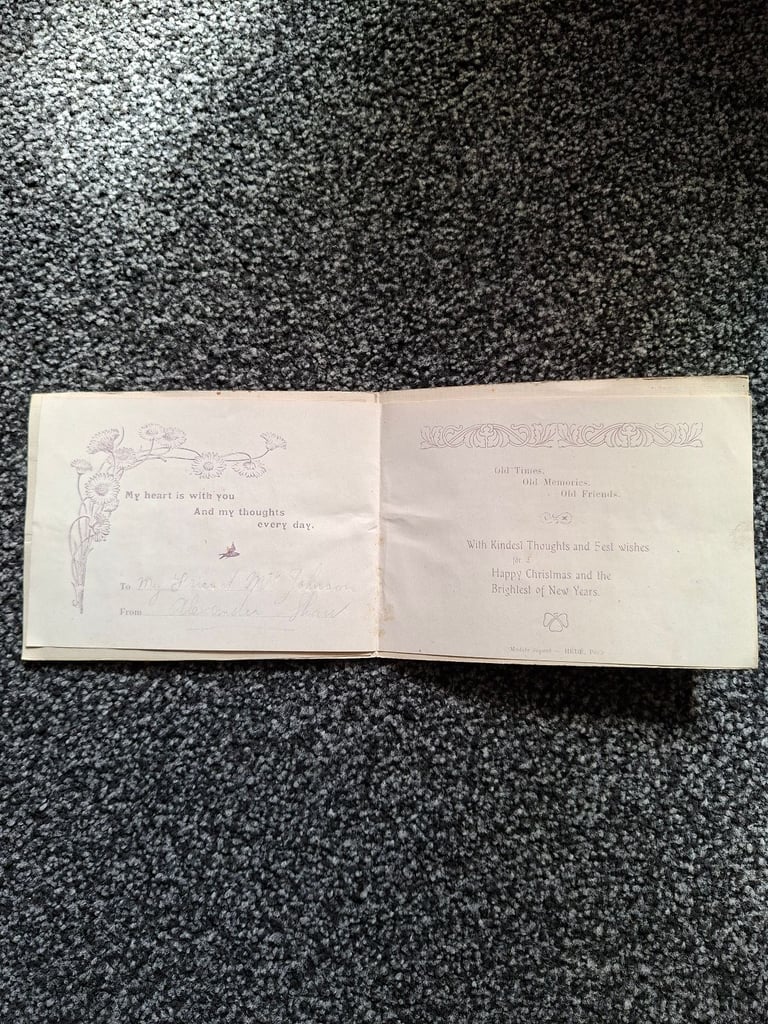 My heart is with you
And my thoughts
every day.
To My Friend Mrs Johnson
From Alexander Shaw
Old Times.
Old Memories.
Old Friends.
With Kindest Thoughts and Best wishes
for a
Happy Christmas and the
Brightest of New Years.